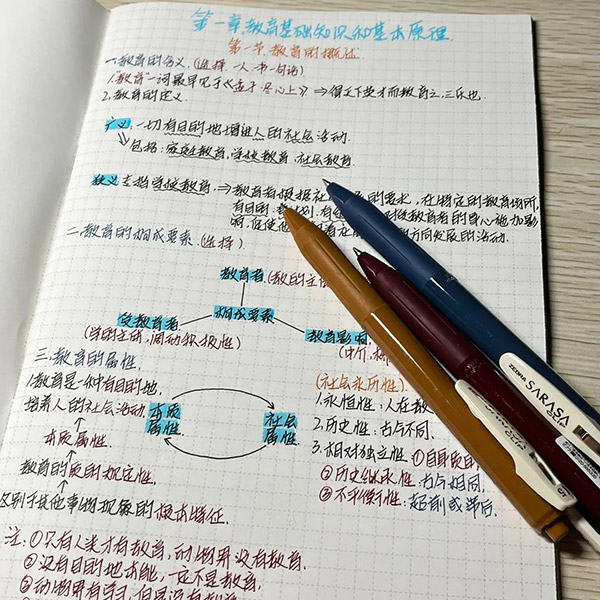 第一章教育基础知识和基本原理.
第一节 教育的概述
一.教育的含义.(选择 一人一书一句话)
1.教育"一词最早见于《孟子·尽心上》⇒得天下英才而教育之.三乐也.
2.教育的定义.
广义.一切有目的地增进人的社会活动.
包括:家庭教育,学校教育,社会教育
狭义 主指学校教育,⇒教育者根据社 的要求,在特定的教育场所,
有目的. 划.有 教育者的身心施加影
响,促使他 方向发展的活动.
二.教育的构成要素.(选择)
教育者.(教的主体
受教育者 构成要素
(学的主体,调动积极性) 教育影响
(中介,
三.教育的属性.
1.教育是一种有目的地.
培养人的社会活动. 本质属性 社会属性
本质属性.
教育的质的规定性.
区别于其他事物现象的根本特征.
(社会永历性)
1.永恒性:人在教
2.历史性:古与不同.
3.相对独立性:①自身质的
②历史继承性:古与相同.
③不平衡性:超前或滞后.
注:①只有人类才有教育,动物界没有教育.
②没有目的地本能,一定不是教育.
③动物界有学习,但是没有教育
ZEBRA SARASA CLIP